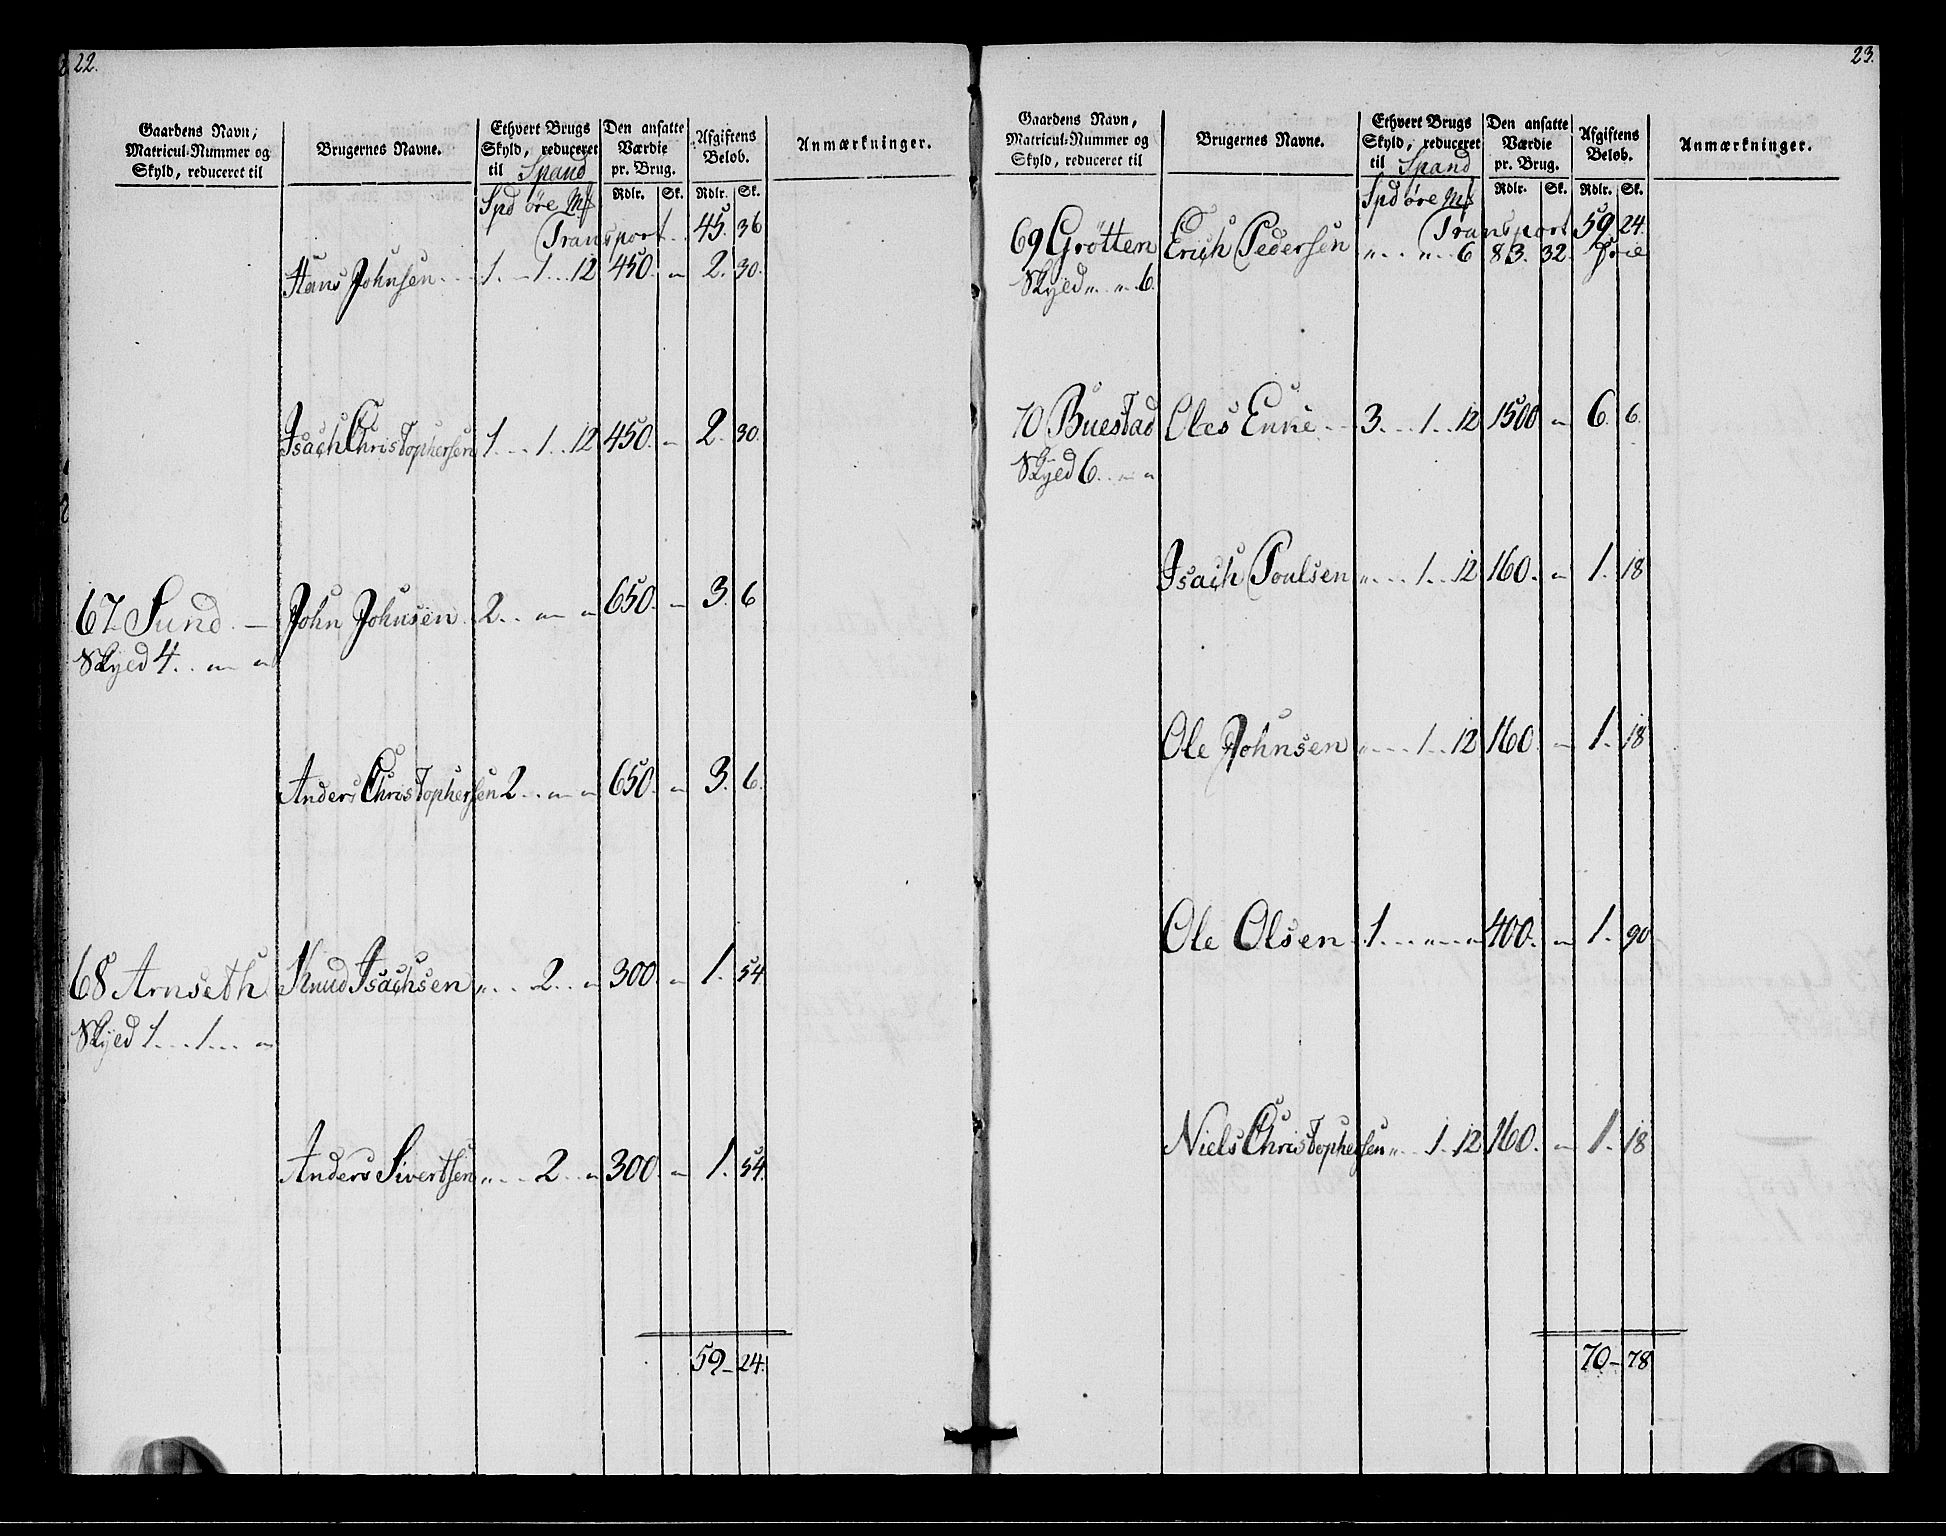 22.
Gaardens Navn, Matricul-Nummer og Skyld, reduceret til | Brugernes Navne. | Ethvert Brugs Skyld, reduceret til Spand | Den ansatte Værdie pr. Brug. | Afgiftens Beløb. | Anmærkninger.
Spd øre Mk | Rdlr. | Sk. | Rdlr. | Sk.
Transport .. 45. 36
Hans Johnsen .... 1. .. 1 ... 12 450. " 2. 30.
Isach Christophersen 1. ... 1. .. 12 450. " 2. 30.
67 Sund. — John Johnsen . 2. .. " " 650. " 3. 6
Skyld 4. .. " "
Anders Christophersen 2. .. " " 650. " 3. 6.
68 Arnseth Knud Isachsen " .. 2. .. " 300. " 1. 54
Skyld 1. ... 1. ... "
Anders Sivertsen " ... 2. .. " 300. " 1. 54.
59 — 24.
23.
Gaardens Navn, Matricul-Nummer og Skyld, reduceret til | Brugernes Navne. | Ethvert Brugs Skyld, reduceret til Spand | Den ansatte Værdie pr. Brug. | Afgiftens Beløb. | Anmærkninger.
Spd øre Mk | Rdlr. | Sk. | Rdlr. | Sk.
Transport 59 24.
69 Grøtten Erich Pedersen " .. " .. 6 83. 32. frie
Skyld " .. " 6.
70 Buestad Oles Enke .. 3. ... 1 .. 12 1500 " 6. 6.
Skyld 6. .. " "
Isach Poulsen " .... 1. .. 12 160. " 1. 18
Ole Johnsen " .... 1. .. 12 160. " 1. 18
Ole Olsen . 1. ... " .. " 400. " 1. 90
Niels Christophersen " .. 1. 12 160. " 1. 18
70 — 78